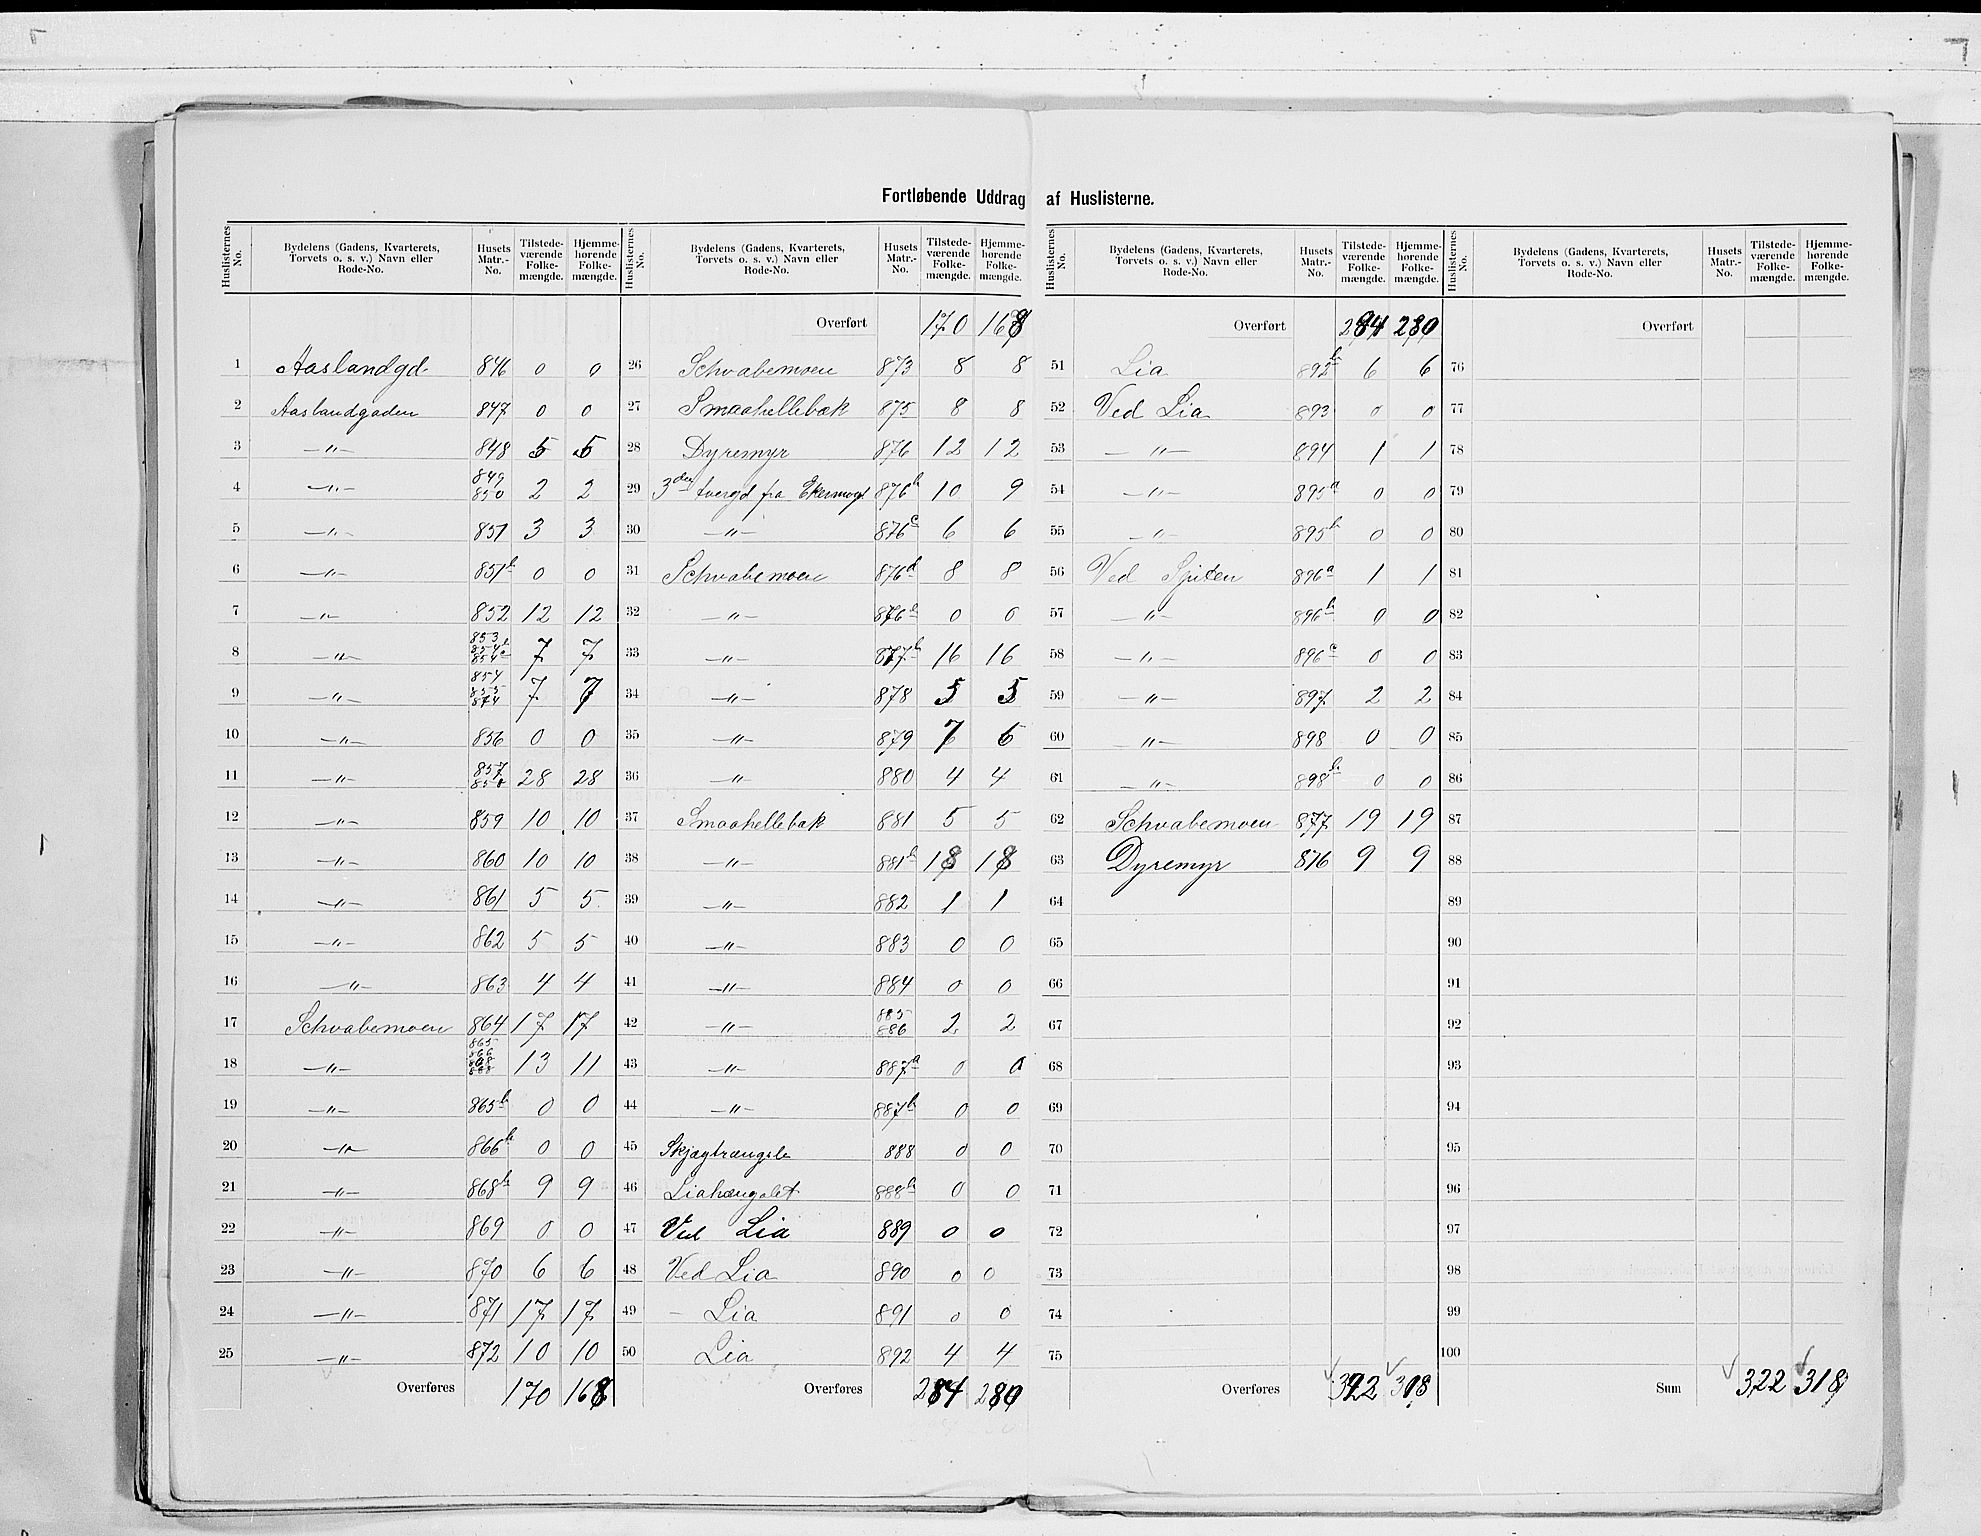 Fortløbende Uddrag af Huslisterne.
Huslisternes No. Bydelens (Gadens, Kvarterets, Torvets o. s. v.) Navn eller Rode-No. Husets Matr.-No. Tilstedeværende Folkemængde. Hjemmehørende Folkemængde.
1 Aaslandgd. 846 0 0
2 Aaslandgaden 847 0 0
3 —"— 848 5 5
4 —"— 849 850 2 2
5 —"— 851 3 3
6 —"— 851b 0 0
7 —"— 852 12 12
8 —"— 853 854b 854c 7 7
9 —"— 854 855 874 7 7
10 —"— 856 0 0
11 —"— 857 858 28 28
12 —"— 859 10 10
13 —"— 860 10 10
14 —"— 861 5 5
15 —"— 862 5 5
16 —"— 863 4 4
17 Schvabemoen 864 17 17
18 —"— 865 866 13 11
19 —"— 865b 0 0
20 —"— 866b 0 0
21 —"— 868b 9 9
22 —"— 869 0 0
23 —"— 870 6 6
24 —"— 871 17 17
25 —"— 872 10 10
Overføres 170 168
Huslisternes No. Bydelens (Gadens, Kvarterets, Torvets o. s. v.) Navn eller Rode-No. Husets Matr.-No. Tilstedeværende Folkemængde. Hjemmehørende Folkemængde.
Overført 170 168
26 Schvabemoen 873 8 8
27 Smaahellebæk 875 8 8
28 Dyremyr 876 12 12
29 3die tvergd fra Ekermogt 876b 10 9
30 —"— 876c 6 6
31 Schvabemoen 876d 8 8
32 —"— 876e 0 0
33 —"— 877b 16 16
34 —"— 878 5 5
35 —"— 879 7 6
36 —"— 880 4 4
37 Smaahellebæk 881 5 5
38 —"— 881b 18 18
39 —"— 882 1 1
40 —"— 883 0 0
41 —"— 884 0 0
42 —"— 885 886 2 2
43 —"— 887a 0 0
44 —"— 887b 0 0
45 888 0 0
46 888b 0 0
47 Ved Lia 889 0 0
48 Ved Lia 890 0 0
49 – Lia 891 0 0
50 Lia 892 4 4
Overføres 284 280
Huslisternes No. Bydelens (Gadens, Kvarterets, Torvets o. s. v.) Navn eller Rode-No. Husets Matr.-No. Tilstedeværende Folkemængde. Hjemmehørende Folkemængde.
Overført 284 280
51 Lia 892b 6 6
52 Ved Lia 893 0 0
53 —"— 894 1 1
54 —"— 895a 0 0
55 —"— 895b 0 0
56 Ved Spiten 896a 1 1
57 —"— 896b 0 0
58 —"— 896c 0 0
59 —"— 897 2 2
60 —"— 898 0 0
61 —"— 898b 0 0
62 Schvabemoen 877 19 19
63 Dyremyr 876 9 9
64
65
66
67
68
69
70
71
72
73
74
75
Overføres 322 318
Huslisternes No. Bydelens (Gadens, Kvarterets, Torvets o. s. v.) Navn eller Rode-No. Husets Matr.-No. Tilstedeværende Folkemængde. Hjemmehørende Folkemængde.
Overført
76
77
78
79
80
81
82
83
84
85
86
87
88
89
90
91
92
93
94
95
96
97
98
99
100
Sum 322 318